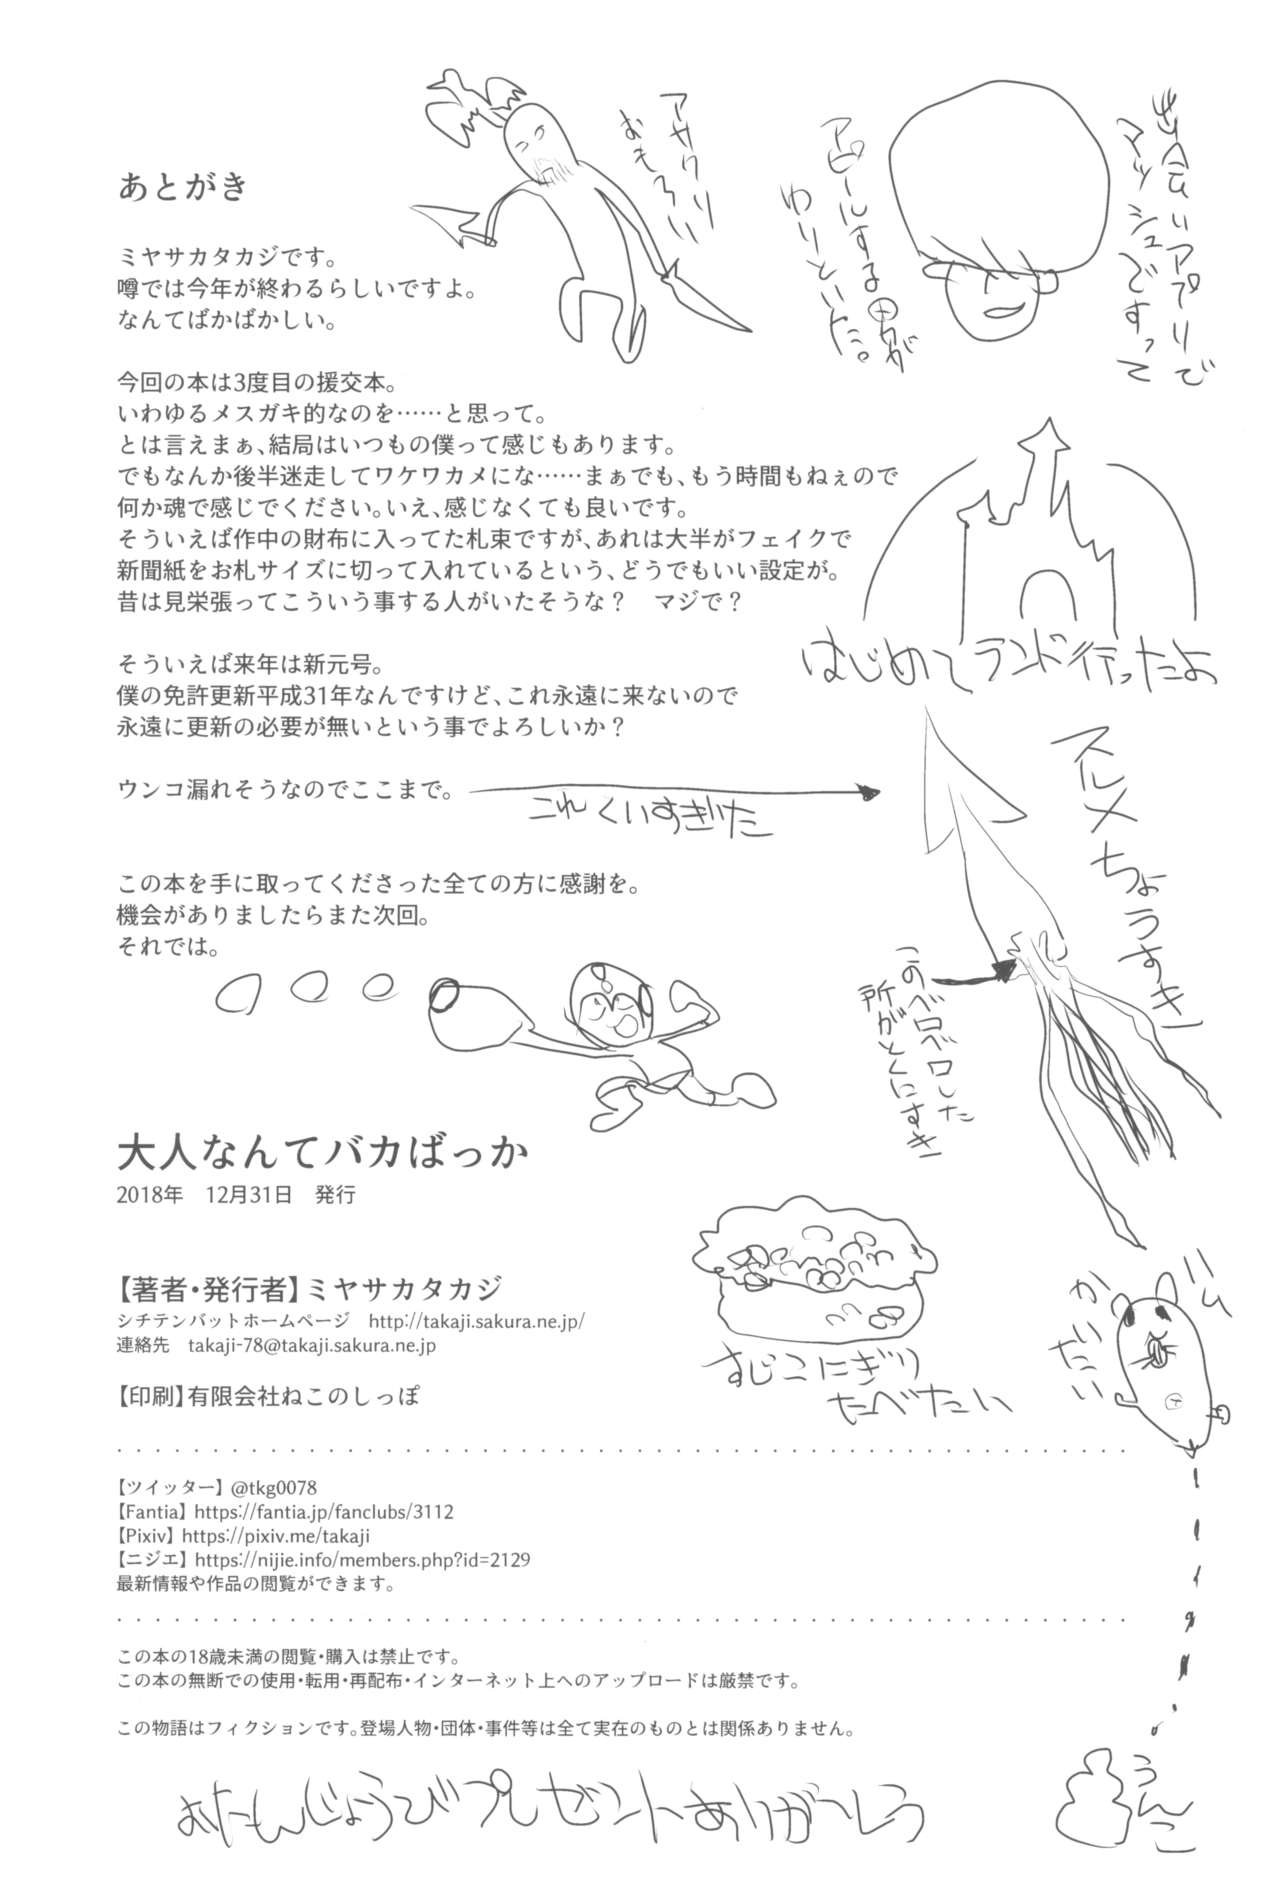 アサクリ
おもろい
出会いアプリで
マッシュですって
アピールする男が
ゆりといた。
あとがき
ミヤサカタカジです。
噂では今年が終わるらしいですよ。
なんてばかばかしい。
今回の本は3度目の援交本。
いわゆるメスガキ的なのを……と思って。
とは言えまぁ、結局はいつもの僕って感じもあります。
でもなんか後半迷走してワケワカメにな……まぁでも、もう時間もねぇので
何か魂で感じでください。いえ、感じなくても良いです。
そういえば作中の財布に入ってた札束ですが、あれは大半がフェイクで
新聞紙をお札サイズに切って入れているという、どうでもいい設定が。
昔は見栄張ってこういう事する人がいたそうな？　マジで？
はじめてランド行ったよ
そういえば来年は新元号。
僕の免許更新平成31年なんですけど、これ永遠に来ないので
永遠に更新の必要が無いという事でよろしいか？
ウンコ漏れそうなのでここまで。
これくいすぎた
スルメちょうすき
このベロベロした
所がとくにすき
この本を手に取ってくださった全ての方に感謝を。
機会がありましたらまた次回。
それでは。
大人なんてバカばっか
2018年　12月31日　発行
【著者・発行者】ミヤサカタカジ
シチテンバットホームページ　http://takaji.sakura.ne.jp/
連絡先　takaji-78@takaji.sakura.ne.jp
すじこにぎり
たべたい
ハム
かいたい
【印刷】有限会社ねこのしっぽ
【ツイッター】@tkg0078
【Fantia】https://fantia.jp/fanclubs/3112
【Pixiv】https://pixiv.me/takaji
【ニジエ】https://nijie.info/members.php?id=2129
最新情報や作品の閲覧ができます。
この本の18歳未満の閲覧・購入は禁止です。
この本の無断での使用・転用・再配布・インターネット上へのアップロードは厳禁です。
この物語はフィクションです。登場人物・団体・事件等は全て実在のものとは関係ありません。
うんこ
おたんじょうびプレゼントありがとう